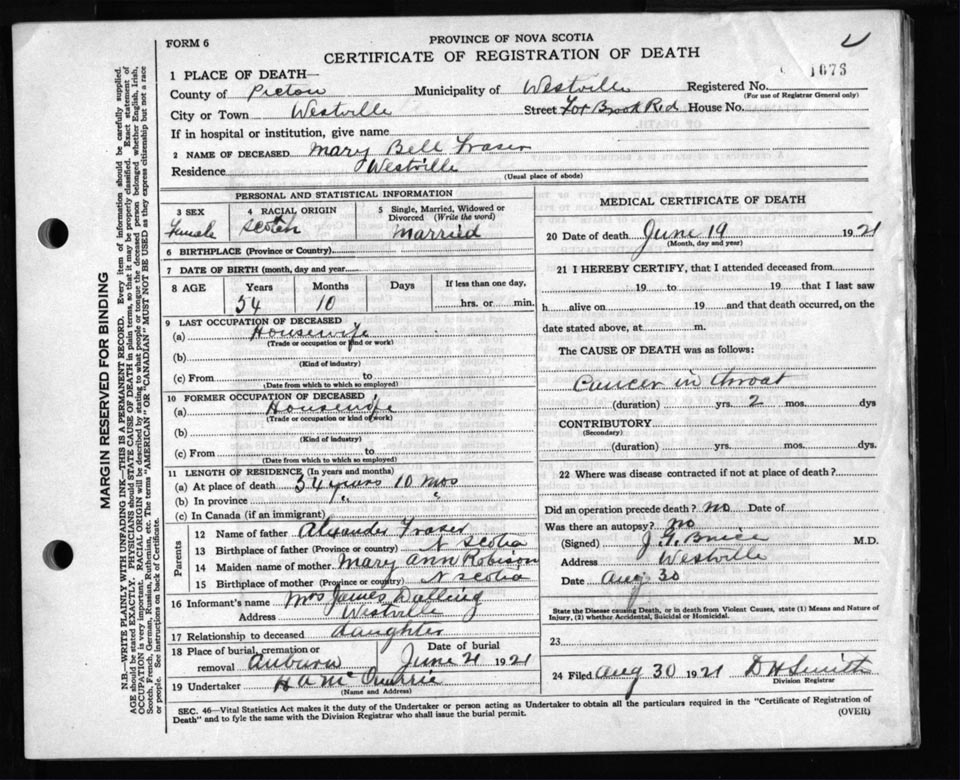 PROVINCE OF NOVA SCOTIA
FORM 6
CERTIFICATE OF REGISTRATION OF DEATH
1673
1 PLACE OF DEATH—
County of Pictou Municipality of Westville Registered No.
(For use of Registrar General only)
City or Town Westville Street Fox Brook Rd. House No.
If in hospital or institution, give name
2 NAME OF DECEASED Mary Bell Fraser
Residence Westville
(Usual place of abode)
PERSONAL AND STATISTICAL INFORMATION
3 SEX Female
4 RACIAL ORIGIN Scotch
5 Single, Married, Widowed or Divorced (Write the word) Married
6 BIRTHPLACE (Province or Country)
7 DATE OF BIRTH (month, day and year
8 AGE Years Months Days If less than one day,
54 10 hrs. or min.
9 LAST OCCUPATION OF DECEASED
(a) Housewife
(Trade or occupation or kind or work)
(b)
(Kind of industry)
(c) From to
(Date from which to which so employed)
10 FORMER OCCUPATION OF DECEASED
(a) Housewife
(Trade or occupation or kind of work)
(b)
(Kind of industry)
(c) From to
(Date from which to which so employed)
11 LENGTH OF RESIDENCE (In years and months)
(a) At place of death 54 years 10 mos
(b) In province " "
(c) In Canada (if an immigrant)
Parents
12 Name of father Alexander Fraser
13 Birthplace of father (Province or country) N Scotia
14 Maiden name of mother Mary Ann Robison
15 Birthplace of mother (Province or country) N Scotia
16 Informant's name Mrs James
Address Westville
17 Relationship to deceased daughter
18 Place of burial, cremation or removal Auburn
Date of burial June 21 1921
19 Undertaker H A Mc
(Name and Address)
MEDICAL CERTIFICATE OF DEATH
20 Date of death June 19 1921
(Month, day and year)
21 I HEREBY CERTIFY, that I attended deceased from
19 to 19 that I last saw
h alive on 19 and that death occurred, on the
date stated above, at m.
The CAUSE OF DEATH was as follows:
Cancer in throat
(duration) yrs. 2 mos. dys
CONTRIBUTORY
(Secondary)
(duration) yrs. mos. dys.
22 Where was disease contracted if not at place of death?
Did an operation precede death? no Date of
Was there an autopsy? no
(Signed) M.D.
Address Westville
Date Aug 30
State the Disease causing Death, or in death from Violent Causes, state (1) Means and Nature of
Injury, (2) whether Accidental, Suicidal or Homicidal.
23
24 Filed Aug 30 1921 D H Smith
Division Registrar
SEC. 46—Vital Statistics Act makes it the duty of the Undertaker or person acting as Undertaker to obtain all the particulars required in the "Certificate of Registration of
Death" and to fyle the same with the Division Registrar who shall issue the burial permit.
(OVER)
MARGIN RESERVED FOR BINDING
N.B.—WRITE PLAINLY WITH UNFADING INK—THIS IS A PERMANENT RECORD. Every item of information should be carefully supplied.
AGE should be stated EXACTLY. PHYSICIANS should STATE CAUSE OF DEATH in plain terms, so that it may be properly classified. Exact statement of
OCCUPATION is very important. RACIAL ORIGIN will be described by stating to what people or tongue the deceased person belonged whether English, Irish,
Scotch, French, German, Russian, Ruthenian, etc. The terms "AMERICAN" OR "CANADIAN" MUST NOT BE USED as they express citizenship but not a race
or people. See instructions on back of Certificate.